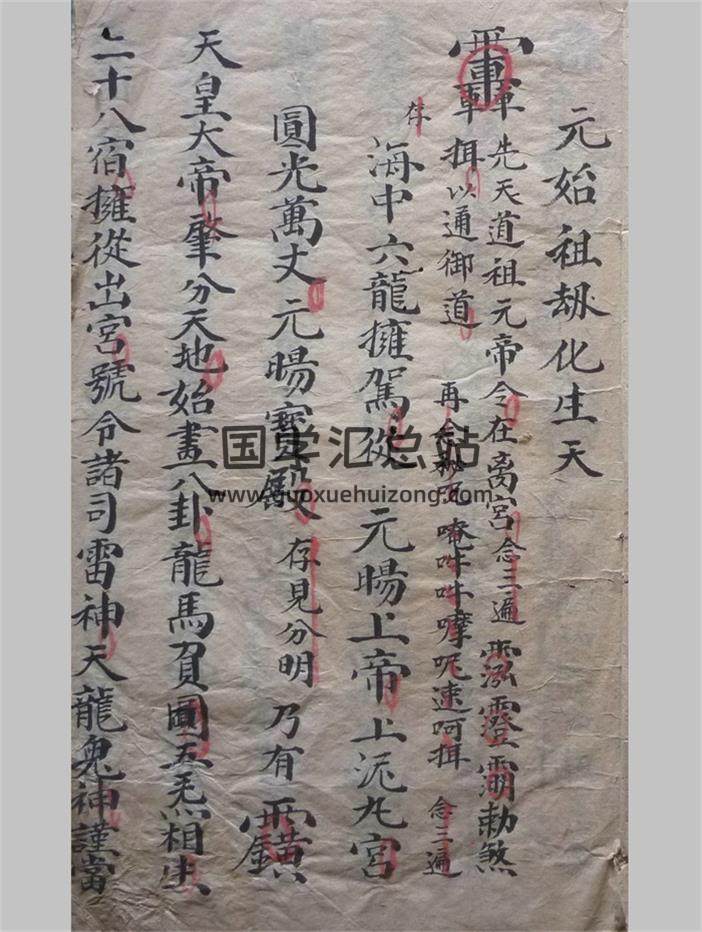 元始祖劫化生天
先天道祖元帝今在离宮念三遍霐霯勅煞
揖以通御道 再念秘咒唵吽吽嚤呢速呵揖 念三遍
存 海中六龍擁駕從 元暘上帝上泥九宮
圓光萬丈元暘寶殿 存見分明 乃有
天皇大帝肇分天地始畫八卦龍馬負圖五炁相生
二十八宿擁從出宮號令諸司雷神天龍鬼神謹當
国学汇总站
www.guoxuehuizong.com